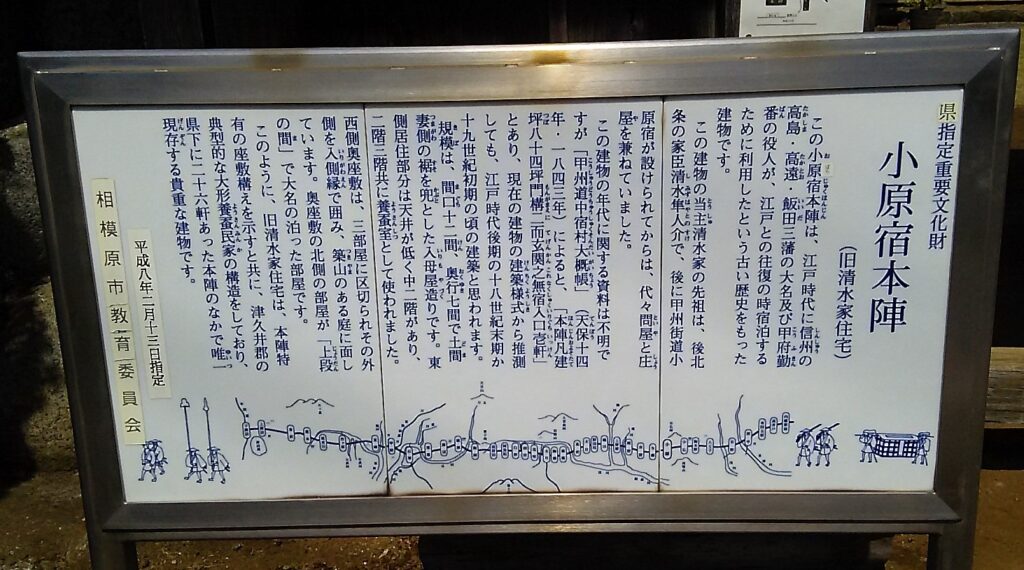 県指定重要文化財
小原宿本陣
(旧清水家住宅)
この小原宿本陣は、江戸時代に信州の
高島・高遠・飯田三藩の大名及び甲府勤
番の役人が、江戸との往復の時宿泊する
ために利用したという古い歴史をもった
建物です。
この建物の当主清水家の先祖は、後北
条の家臣清水隼人介で、後に甲州街道小
原宿が設けられてからは、代々問屋と庄
屋を兼ねていました。
この建物の年代に関する資料は不明で
すが「甲州道中宿村大概帳」(天保十四
年・一八四三年)によると、「本陣凡建
坪八十四坪門構ニ而玄関之無宿入口壱軒」
とあり、現在の建物の建築様式から推測
しても、江戸時代後期の十八世紀末期か
十九世紀初期の頃の建築と思われます。
規模は、間口十二間、奥行七間で土間
妻側の裾を兜とした入母屋造りです。東
側居住部分は天井が低く中二階があり、
二階三階共に養蚕室として使われました。
西側奥座敷は、三部屋に区切られその外
側を入側縁で囲み、築山のある庭に面し
ています。奥座敷の北側の部屋が「上段
の間」で大名の泊った部屋です。
このように、旧清水家住宅は、本陣特
有の座敷構えを示すと共に、津久井郡の
典型的な大形養蚕民家の構造をしており、
県下に二十六軒あった本陣のなかで唯一
現存する貴重な建物です。
平成八年二月十三日指定
相模原市教育委員会